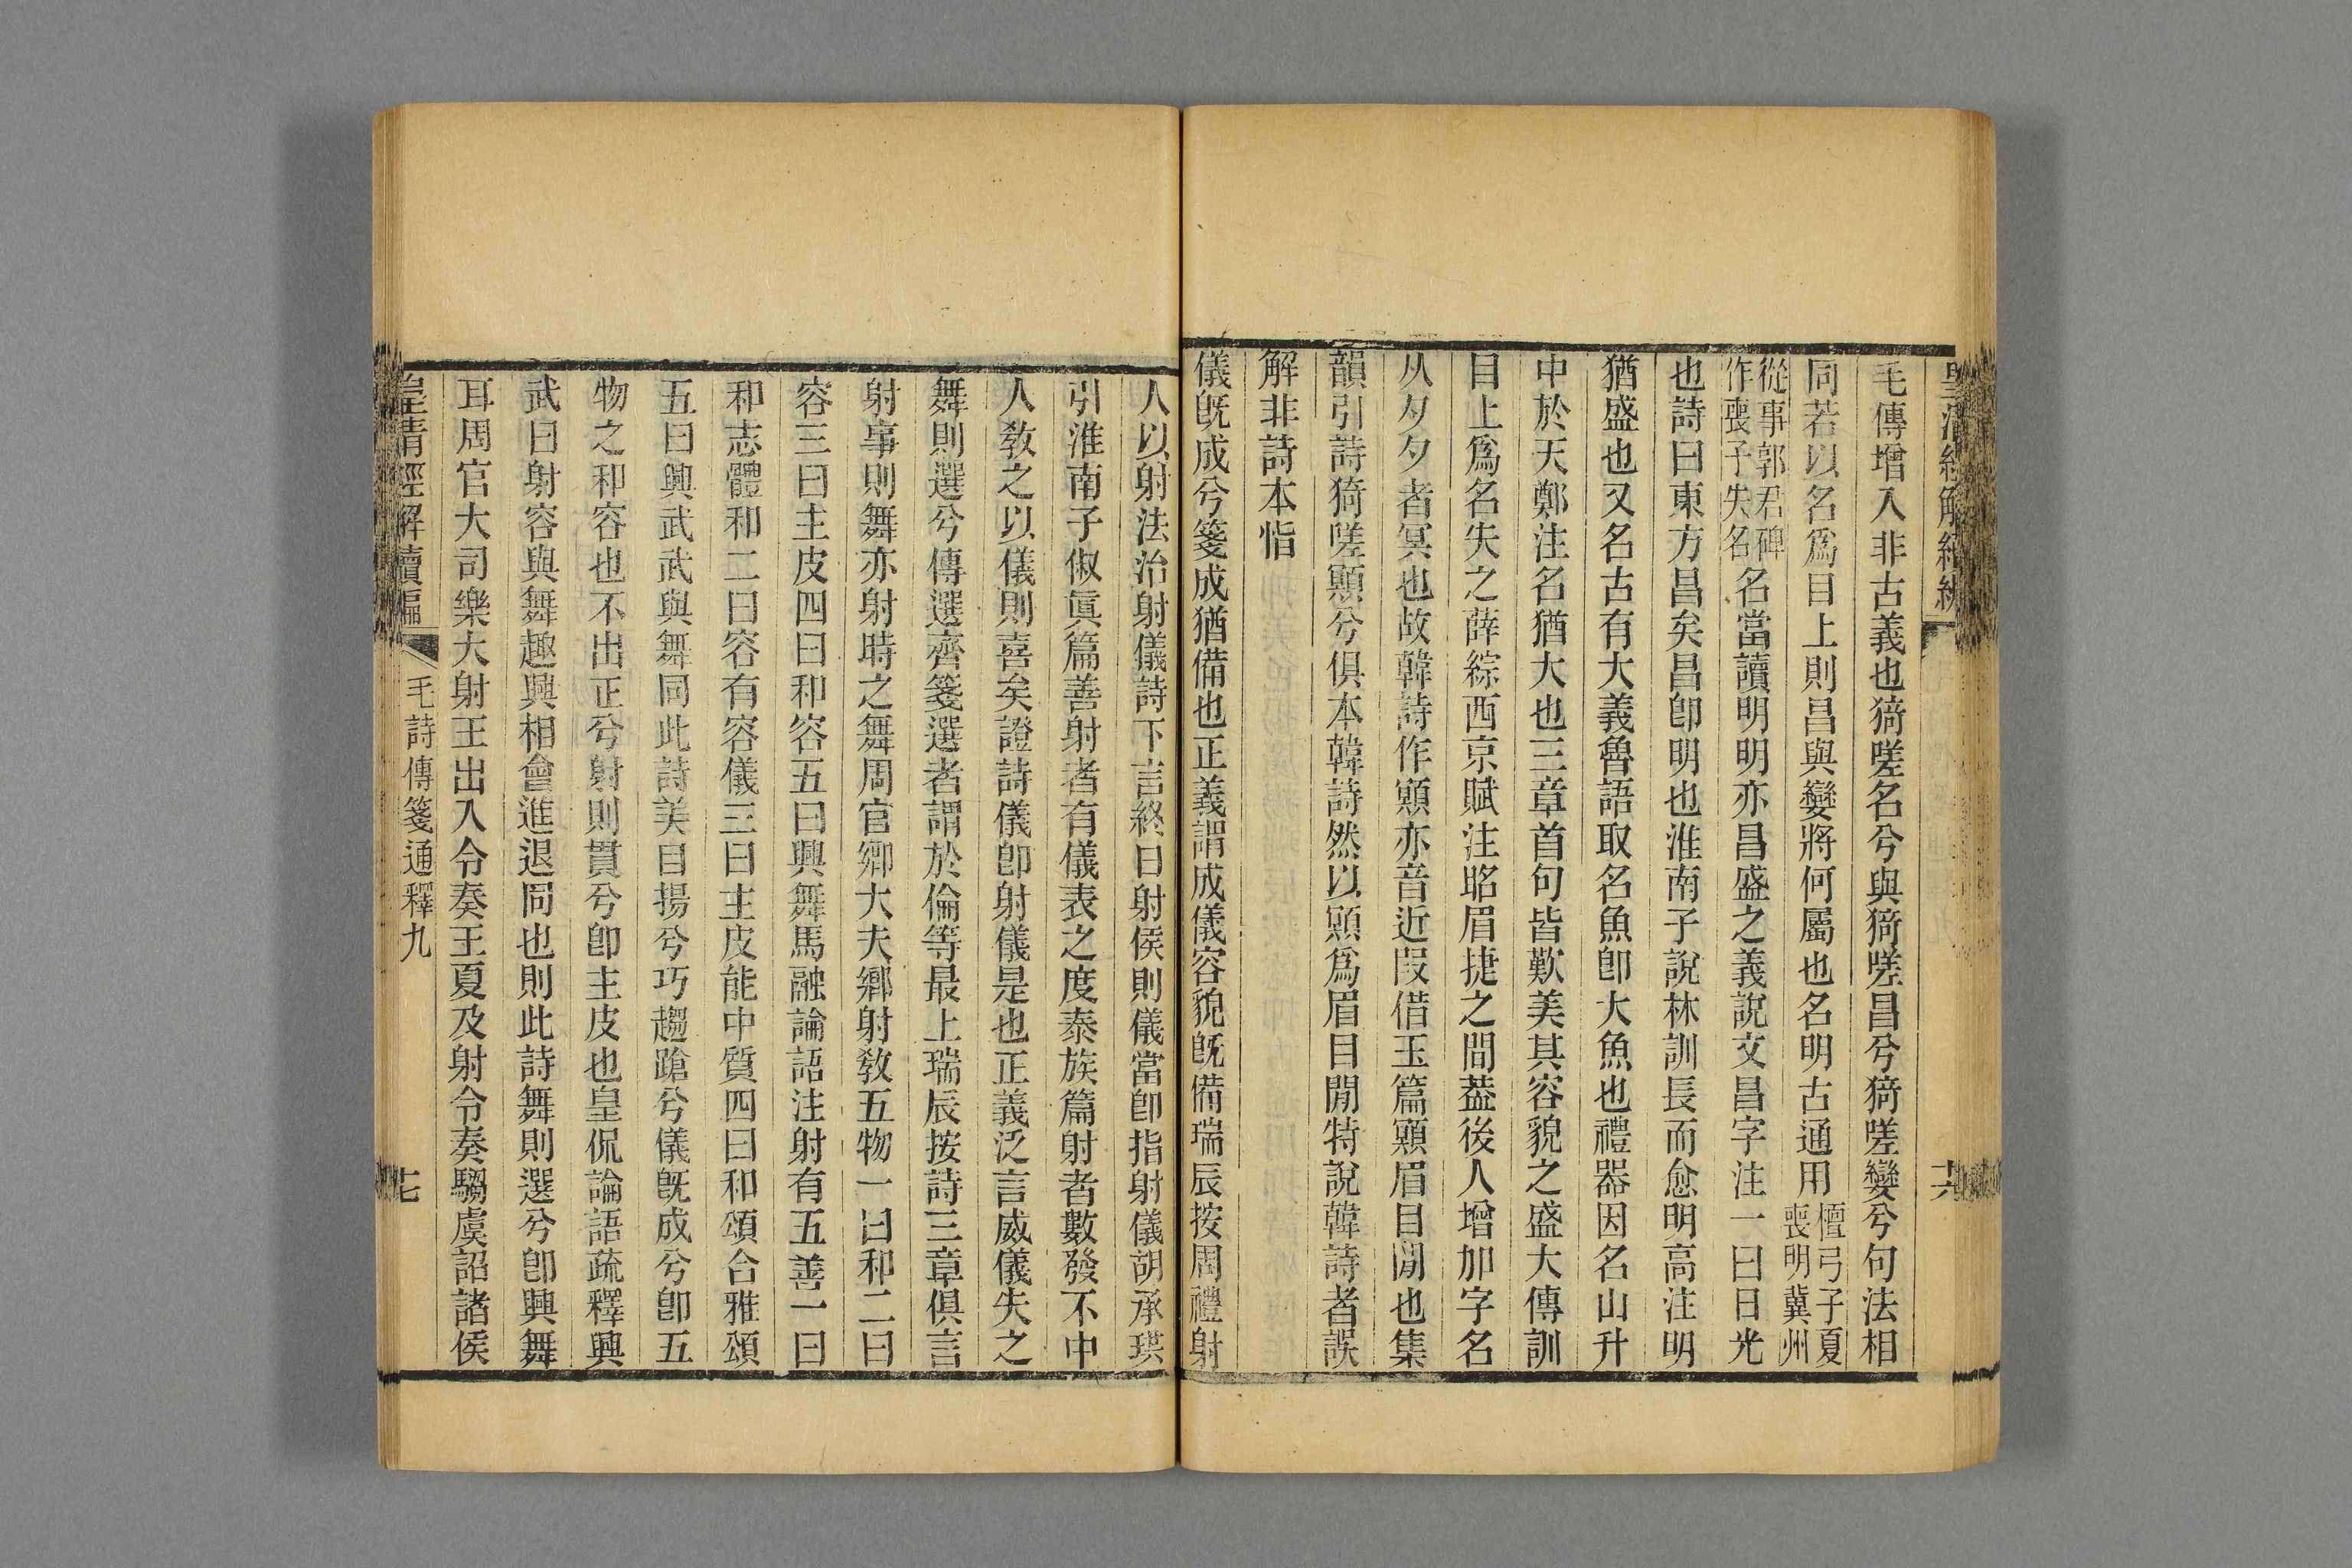 毛傳增入非古義也猗嗟名兮與猗嗟昌兮猗嗟孌兮句法相
同若以名爲目上則昌與孌將何屬也名明古通用檀弓子夏喪明冀州
從事郭君碑作喪子失名名當讀明明亦昌盛之義說文昌字注一曰日光
也詩曰東方昌矣昌卽明也淮南子說林訓長而愈明高注明
猶盛也又名古有大義魯語取名魚卽大魚也禮器因名山升
中於天鄭注名猶大也三章首句皆歎美其容貌之盛大傳訓
目上爲名失之薛綜西京賦注眳眉捷之間葢後人增加字名
从夕夕者冥也故韓詩作顯亦音近叚借玉篇顯眉目閒也集
韻引詩猗嗟顯兮俱本韓詩然以顯爲眉目閒特說韓詩者誤
解非詩本恉
儀旣成兮箋成猶備也正義謂成儀容貌旣備瑞辰按周禮射
人以射法治射儀詩下言終日射侯則儀當卽指射儀胡承珙
引淮南子俶眞篇善射者有儀表之度泰族篇射者數發不中
人敎之以儀則喜矣證詩儀卽射儀是也正義泛言威儀失之
舞則選兮傳選齊箋選者謂於倫等最上瑞辰按詩三章俱言
射事則舞亦射時之舞周官鄉大夫鄉射敎五物一曰和二曰
容三曰主皮四曰和容五曰興舞馬融論語注射有五善一曰
和志體和二曰容有容儀三曰主皮能中質四曰和頌合雅頌
五曰興武武與舞同此詩美目揚兮巧趨蹌兮儀旣成兮卽五
物之和容也不出正兮射則貫兮卽主皮也皇侃論語疏釋興
武曰射容與舞趣興相會進退同也則此詩舞則選兮卽興舞
耳周官大司樂大射王出入令奏王夏及射令奏騶虞詔諸侯
皇淸經解續編 毛詩傳箋通釋九 七